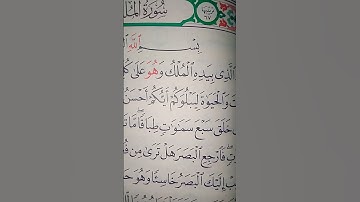 سُورَةُ الْمُلْ
بِسْمِ اللّٰهِ
الَّذِى بِيَدِهِ الْمُلْكُ وَهُوَ عَلٰى كُ
وَالْحَيٰوةَ لِيَبْلُوَكُمْ اَيُّكُمْ اَحْسَنُ
خَلَقَ سَبْعَ سَمٰوَاتٍ طِبَاقًا مَا
فَارْجِعِ الْبَصَرَ هَلْ تَرٰى مِنْ فُ
اِلَيْكَ الْبَصَرُ خَاسِئًا وَهُوَ حَ